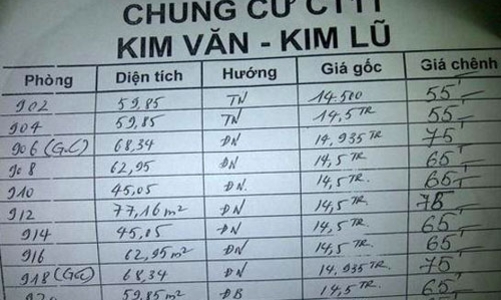 CHUNG CƯ CT11
KIM VĂN - KIM LŨ
Phòng Diện tích Hướng Giá gốc Giá chênh
902 59,85 TN 14.500 55T
904 59,85 TN 14,5 TR 55T
906 (G.C) 68,34 ĐN 14,935 TR 75T
908 62,95 ĐN 14,5 TR 65T
910 45,05 ĐN. 14,5 TR. 65T
912 77,16 m² ĐN 14,5 TR. 75
914 45,05 ĐN 14,5 TR. 65T
916 62,95 m² ĐN 14,5 TR. 65T
918 (GC) 68,34 ĐN 14,935 TR 75T
59,85 m² ĐB 14,5 TR. 65T